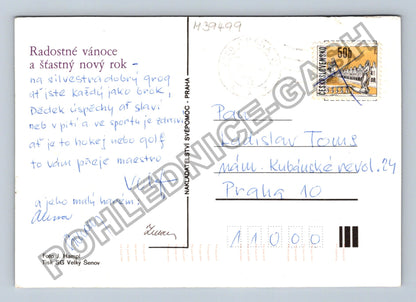 M39499
Radostné vánoce
a šťastný nový rok –
na silvestra dobrý grog
ať jste každý jako brok,
Dědek úspěchy ať slaví
neb v pití a ve sportu je
ať je to hokej nebo golf
to vám přeje maestro
a jeho malý harém:
Alena
Zuzana
Foto J. Hampl
Tisk SG Velký Šenov
NAKLADATELSTVÍ SVÉPOMOC - PRAHA
ČESKOSLOVENSKO
50h
Pan
Ladislav Toms
nám. Kubánské revol. 24
Praha 10
11000
POHLEDNICE-GABH